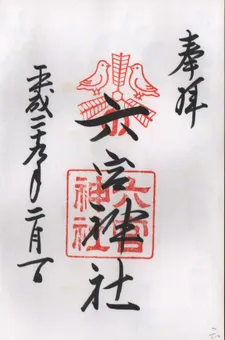 奉拝
六宮神社
六宮神社
平成二十九年二月一日